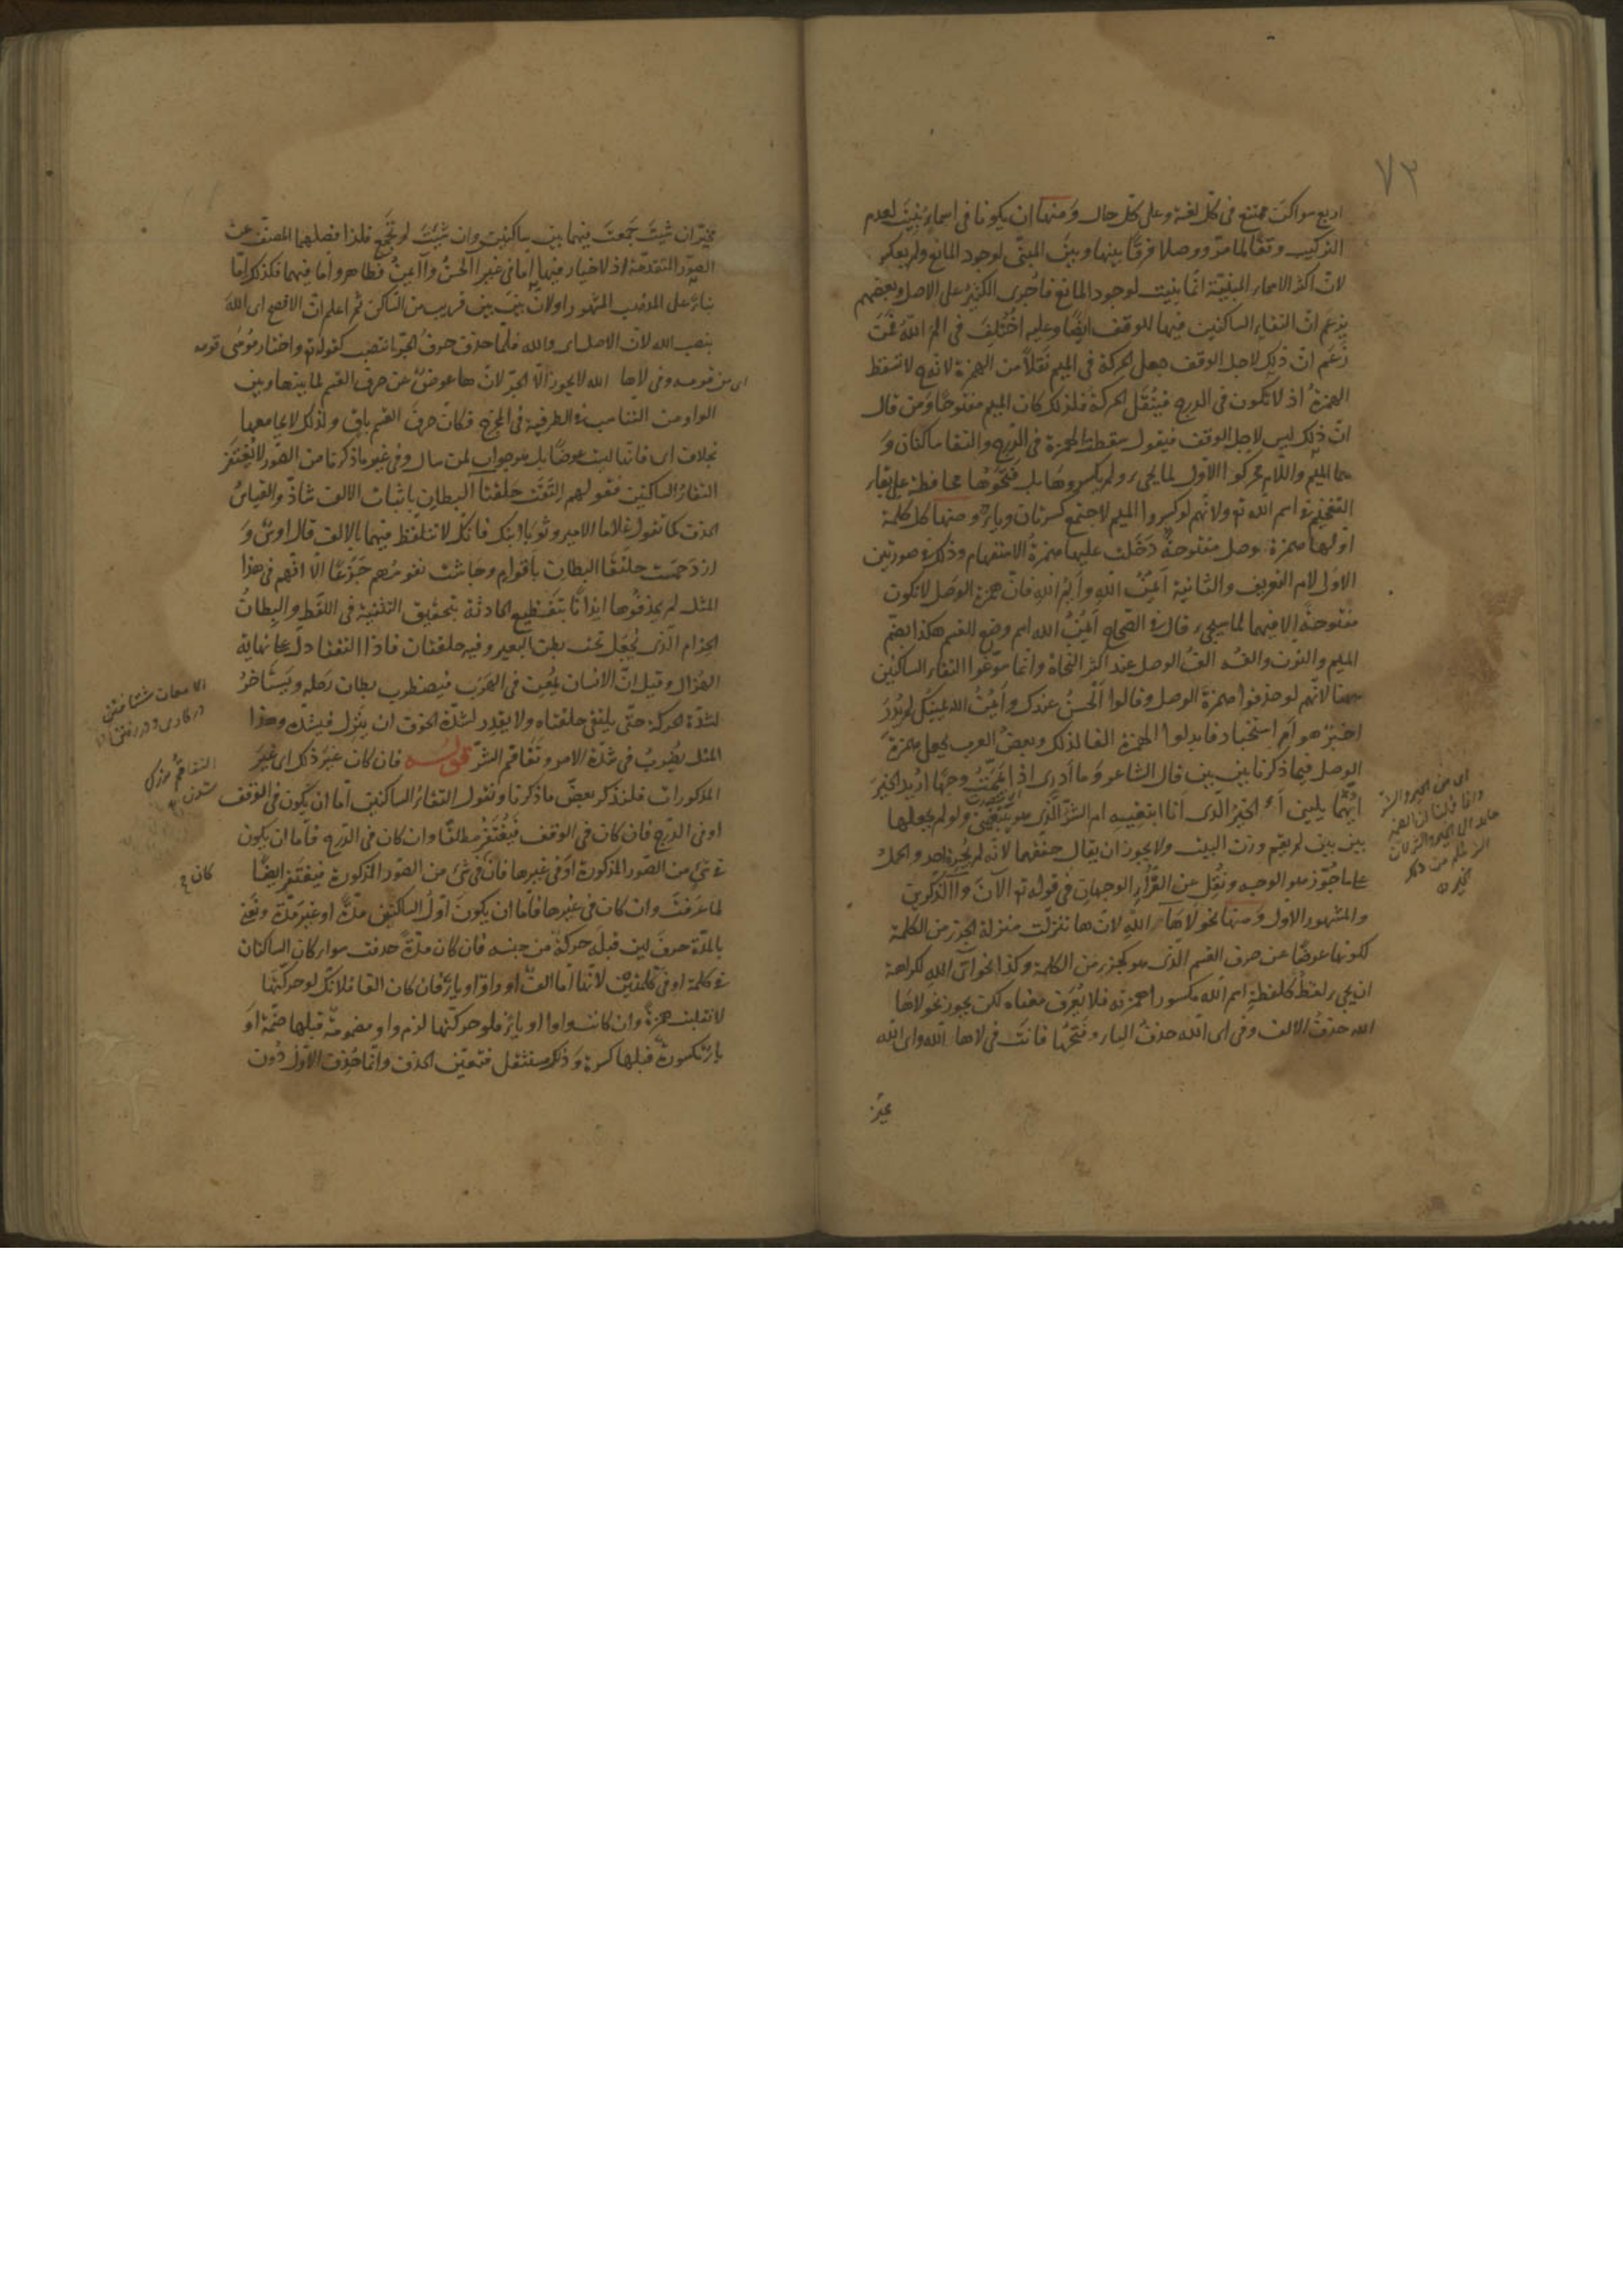 ٧٣
اربع سواكن ممتنع فى كل لغة وعلى كل حال ومنها ان يكونا فى اسماء بنيت لعدم
التركيب وقفا لما مر ووصلا فرقا بينها وبين المبنى لوجود المانع ولم يعكس
لان اكثر الاسماء المبنية انما بنيت لوجود المانع فاجرى الكثير على الاصل وبعضهم
يزعم ان التقاء الساكنين فيها للوقف ايضا وعليه اختلف فى الم الله فمن
زعم ان ذلك لاجل الوقف جعل الحركة فى الميم نقلا من الهمزة لانه لا تسقط
الهمزة اذ لا تكون فى الدرج فينقل الحركة فلذلك كان الميم مفتوحا ومن قال
ان ذلك ليس لاجل الوقف فيقول سقطت الهمزة فى الدرج والتقا ساكنان و
هما الميم واللام فحركوا الاول لما يجىء ولم يكسروها بل فتحوها محافظة على بقاء
التفخيم فى اسم الله تع ولانهم لو كسروا الميم لاجتمع كسرتان وياء ومنها كل كلمة
اولها همزة وصل مفتوحة دخلت عليها همزة الاستفهام وذلك فى صورتين
الاولى لام التعريف والثانية ايمن الله وايم الله فان همزة الوصل لا تكون
مفتوحة الا فيهما لما سيجىء قال فى الصحاح ايمن الله اسم وضع للقسم هكذا بضم
الميم والنون والفه الف الوصل عند اكثر النحاة وانما سوغوا التقاء الساكنين
ههنا لانهم لو حذفوا همزة الوصل وقالوا الحسن عندك وايمن الله يمينك لم يدر
اخبر هو ام استخبار فابدلوا الهمزة الفا لذلك وبعض العرب يجعل همزة
الوصل فيما ذكرنا بين بين قال الشاعر وما ادرى اذا يممت وجها اريد الخير
ايهما يلينى أالخير الذى انا ابتغيه ام الشر الذى هو يبتغينى ولو لم يجعلها
بين بين لم يقم وزن البيت ولا يجوز ان يقال حققهما لانه لم يجزه احد والحمل
على ما جوز هو الوجه ونقل عن القراء الوجهان فى قوله تع آلآن وآالذكرين
والمشهور الاول ومنها نحو لاها الله لان ها تنزلت منزلة الجزء من الكلمة
لكونها عوضا عن حرف القسم الذى هو كجزء من الكلمة وكذا نحو اى الله لكراهة
ان يجىء لفظ كلفظة اسم الله مكسورا همزته فلا يعرف معناه لكن يجوز نحو لاها
الله حذف الالف وفى اى الله حذف الياء وفتحها فانت فى لاها الله واى الله
مخير
مخير ان شئت جمعت فيهما بين ساكنين وان شئت لم تجمع فلذا فصلهما المصنف عن
الصور المتقدمة اذ لا خيار فيها اما فى غير آلحسن وآايمن فظاهر واما فيهما فكذلك اما
بناء على المذهب المشهور او لان بين بين قريب من الساكن ثم اعلم ان الافصح اى الله
بنصب الله لان الاصل اى والله فلما حذف حرف الجر انتصب كقوله تع واختار موسى قومه
اى من قومه وفى لاها الله لا يجوز الا الجر لان ها عوض عن حرف القسم لما بينها وبين
الواو من التناسب فى الطرفية فى المخرج فكان حرف القسم باق ولذلك لا يجامعها
بخلاف اى فانها ليست عوضا بل هو جواب لمن سال وفى غير ما ذكرنا من الصور لا يغتفر
التقاء الساكنين فقولهم التقت حلقتا البطان باثبات الالف شاذ والقياس
الحذف كما تقول غلاما الامير وثوبا ابنك فانك لا تتلفظ فيهما بالالف قال اوس و
ازدحمت حلقتا البطان باقوام وجاشت نفوسهم جزعا الا انهم فى هذا
المثل لم يحذفوها ايذانا بتفظيع الحادثة بتحقيق التثنية فى اللفظ والبطان
الحزام الذى يجعل تحت بطن البعير وفيه حلقتان فاذا التقتا دل على نهاية
الهزال وقيل ان الانسان يمعن فى الهرب فيضطرب بطان رحله ويستأخر
لشدة الحركة حتى يلتقى حلقتاه ولا يقدر لشدة الخوف ان ينزل فيشده وهذا
المثل يضرب فى شدة الامر وتفاقم الشر قوله فان كان غير ذلك اى غير
المذكورات فلنذكر بعض ما ذكرنا ونقول التقاء الساكنين اما ان يكون فى الوقف
او فى الدرج فان كان فى الوقف فيغتفر مطلقا وان كان فى الدرج فاما ان يكون
فى شئ من الصور المذكورة او فى غيرها فان فى شئ من الصور المذكورة فيغتفر ايضا
لما عرفت وان كان فى غيرها فاما ان يكون اول الساكنين مدة او غير مدة ونعنى
بالمدة حرف لين قبله حركة من جنسه فان كان مدة حذفت سواء كان الساكنان
فى كلمة او فى كلمتين لانها اما الف او واو او ياء فان كان الفا فلانك لو حركتها
لانقلبت همزة وان كانت واوا او ياء فلو حركتها لزم واو مضمومة قبلها ضمة او
ياء مكسورة قبلها كسرة وذلك مستثقل فتعين الحذف وانما حذف الاول دون
الامعان شتافتن
التفاقم بزرك
شدن
كان